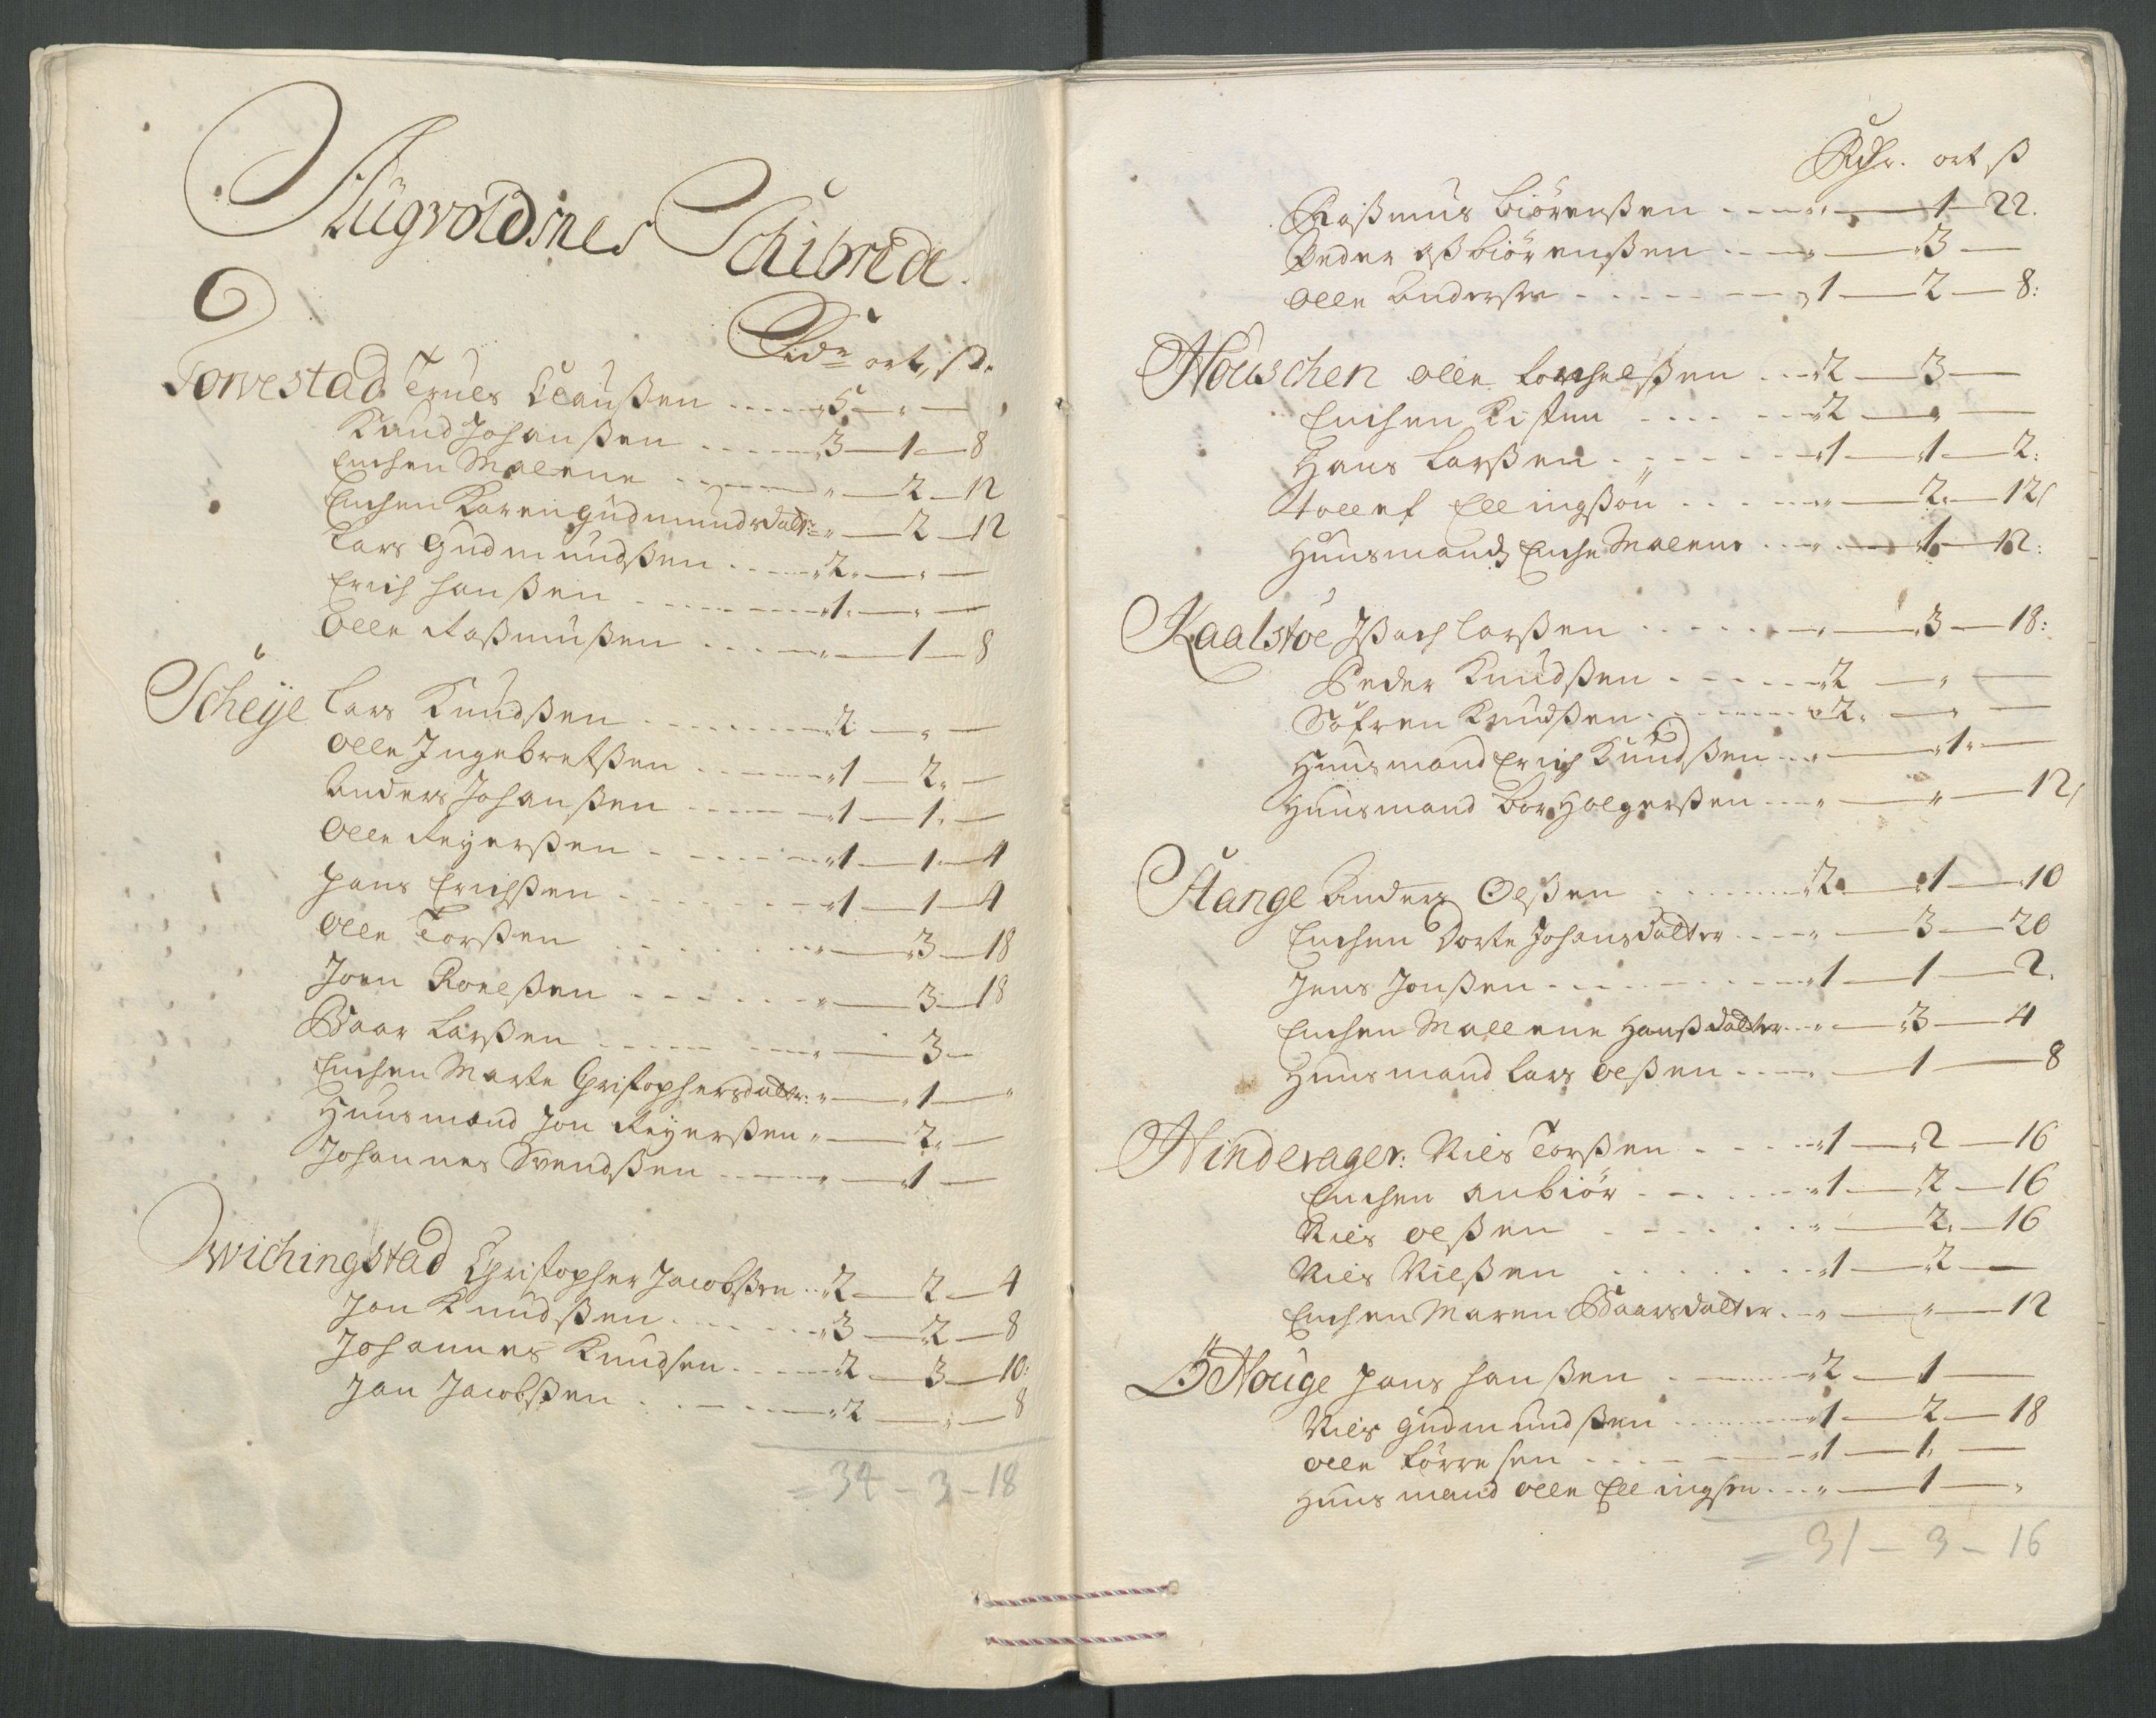 Augvoldsnes Schibrede.
Rdr ort, ß.
Torvestad Truls Claußen ..... 5 — " —
Knud Johanßen ..... 3 — 1 — 8
Enchen Malene ..... " — 2 — 12
Enchen Karen Gudmundsdatr: " — 2 — 12
Lars Gudmundßen ..... 2 — " —
Erich Hanßen ..... 1 — " —
Olle Raßmußen ..... " — 1 — 8
Scheije Lars Knudßen ..... 2 — " —
Olle Ingebretßen ..... 1 — 2 —
Anders Johanßen ..... 1 — 1 —
Olle Reyerßen ..... 1 — 1 — 4
Hans Erichßen ..... 1 — 1 — 4
Olle Torßen ..... " — 3 — 18
Joen Roelßen ..... " — 3 — 18
Baar Larßen ..... " — 3 —
Enchen Marte Christophersdatr: " — 1 — "
Huusmand Jon Reyerßen " — 2 —
Johannes Svendßen ..... " — 1 —
Wichingstad Christopher Jacobßen .. 2 — 2 — 4
Jon Knudßen ..... 3 — 2 — 8
Johannes Knudsen ..... 2 — 3 — 10:
Jan Jacobßen ..... 2 — " — 8
= 34 — 3 — 18
Rdr. ort ß
Raßmus Biörenßen ..... " — 1 — 22.
Peder Aßbiörenßen ..... " — 3 —
Olle Andersen ..... 1 — 2 — 8:
Houschen Olle Torchelßen ... 2 — 3 —
Enchen Kisten ..... 2 — " —
Hans Larßen ..... 1 — 1 — 2:
Tollef Ellingßøn ..... " — 2 — 12
Huusmands Enche Malene ..... " — 1 — 12:
Kaalstøe Ißach Larßen ..... " — 3 — 18:
Peder Knudßen ..... 2 — " —
Søfren Knudßen ..... 2 — " —
Huusmand Erich Knudßen ... " — 1 —
Huusmand Bor Holgerßen ... " — " — 12
Stange Anders Olßen ..... 2 — 1 — 10
Enchen Dorte Johansdatter ..... " — 3 — 20
Jens Jonßen ..... 1 — 1 — 2.
Enchen Mallene Hanßdatter ... " — 3 — 4
Huusmand Lars Olßen ..... " — 1 — 8
Hinderager: Niels Torßen ..... 1 — 2 — 16
Enchen Anbiör ..... 1 — 2 — 16
Niels Olßen ..... " — 2 — 16
Niels Nielßen ..... 1 — 2 —
Enchen Maren Baarsdatter ... " — " — 12
Houge Hans Hanßen ..... 2 — 1 —
Niels Gudmundßen ..... 1 — 2 — 18
Olle Törresen ..... 1 — 1 —
Huusmand Olle Ellingsen ... " — 1 — "
= 31 — 3 — 16